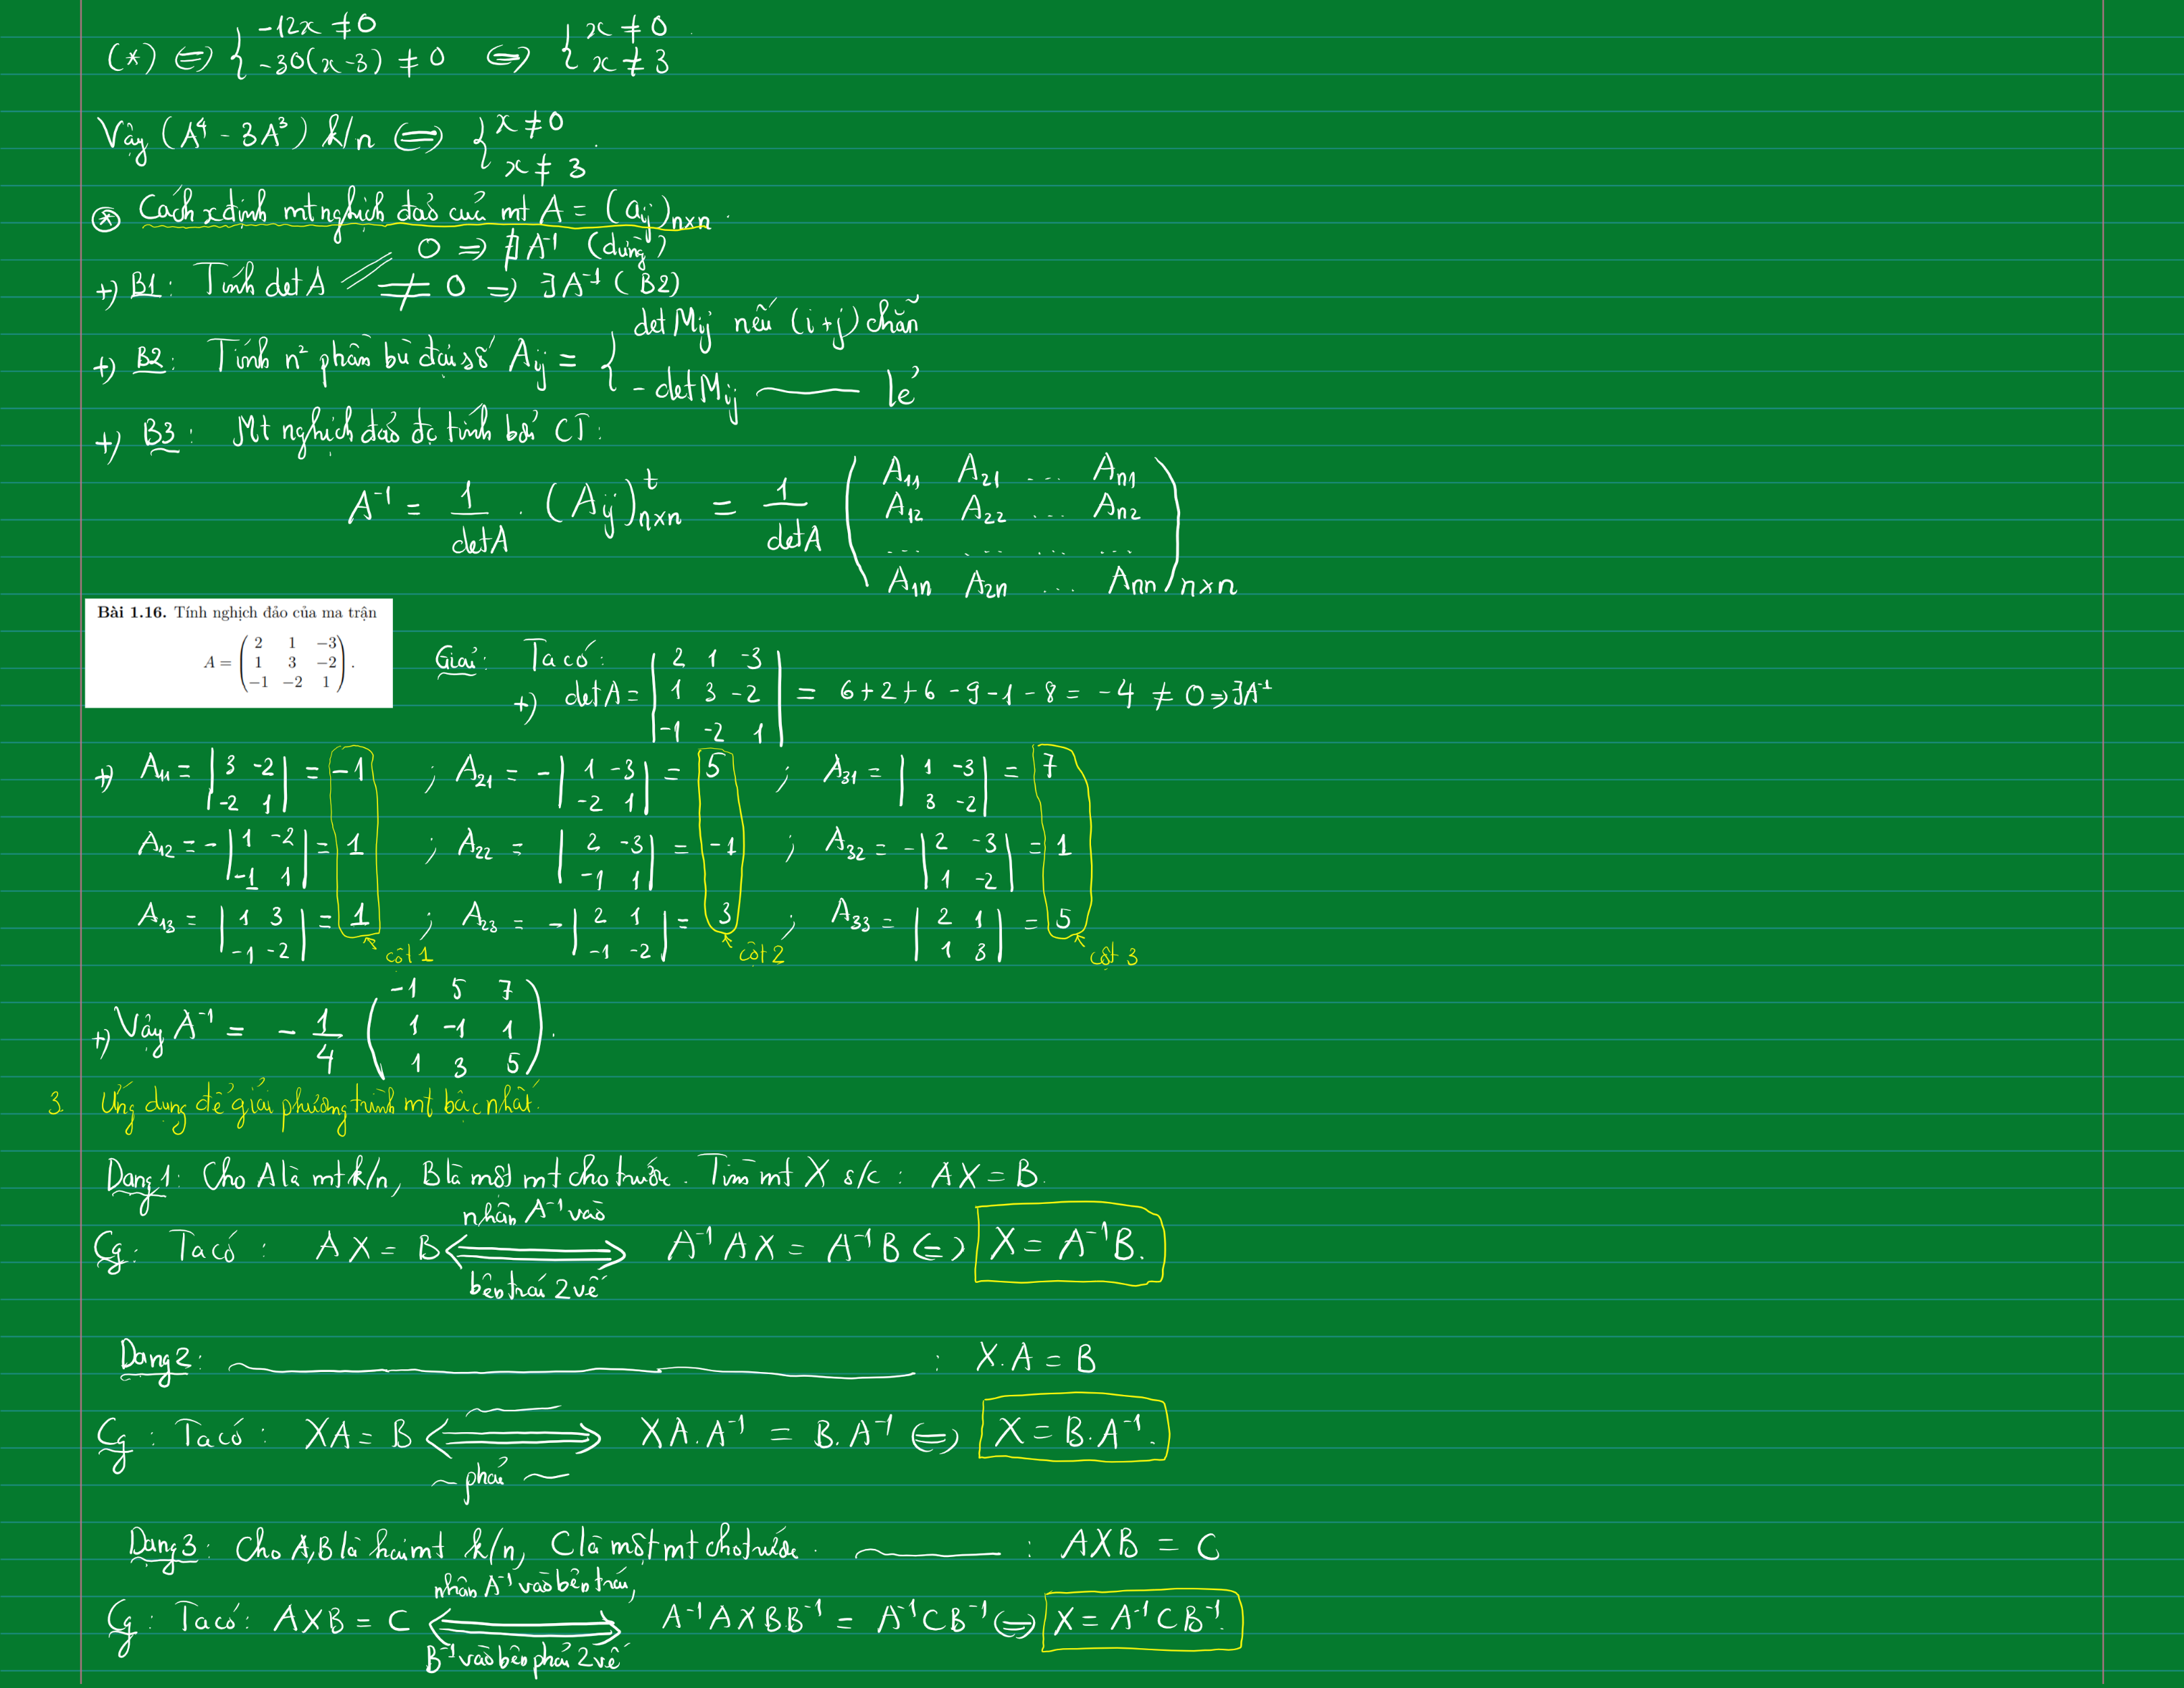 (*) ⇔ { -12x ≠ 0
-30(x-3) ≠ 0 ⇔ { x ≠ 0
x ≠ 3
Vậy (A⁴ - 3A³) k/n ⇔ { x ≠ 0
x ≠ 3.
⊛ Cách xđịnh mt nghịch đảo của mt A = (aij)n×n.
+) B1: Tính detA = 0 ⇒ ∄ A⁻¹ (dừng)
≠ 0 ⇒ ∃ A⁻¹ (B2)
+) B2: Tính n² phần bù đại số Aij = { detMij nếu (i+j) chẵn
- detMij —— lẻ
+) B3: Mt nghịch đảo đc tính bởi CT:
A⁻¹ = 1/detA . (Aij)ᵗn×n = 1/detA ( A11 A21 ... An1
A12 A22 ... An2
... ... ... ...
A1n A2n ... Ann )n×n
Bài 1.16. Tính nghịch đảo của ma trận
A = ( 2 1 −3
1 3 −2
−1 −2 1 ).
Giải: Ta có:
+) detA = | 2 1 -3
1 3 -2
-1 -2 1 | = 6+2+6-9-1-8 = -4 ≠ 0 ⇒ ∃A⁻¹
+) A11 = | 3 -2
-2 1 | = -1 ; A21 = -| 1 -3
-2 1 | = 5 ; A31 = | 1 -3
3 -2 | = 7
A12 = -| 1 -2
-1 1 | = 1 ; A22 = | 2 -3
-1 1 | = -1 ; A32 = -| 2 -3
1 -2 | = 1
A13 = | 1 3
-1 -2 | = 1 ; A23 = -| 2 1
-1 -2 | = 3 ; A33 = | 2 1
1 3 | = 5
cột 1 cột 2 cột 3
+) Vậy A⁻¹ = - 1/4 ( -1 5 7
1 -1 1
1 3 5 ).
3. Ứng dụng để giải phương trình mt bậc nhất.
Dạng 1: Cho A là mt k/n, B là một mt cho trước. Tìm mt X s/c: AX = B.
nhân A⁻¹ vào
Cg: Ta có: AX = B ⟺ A⁻¹AX = A⁻¹B ⇔ X = A⁻¹B.
bên trái 2 vế
Dạng 2: —— : X.A = B
Cg: Ta có: XA = B ⟺ XA.A⁻¹ = B.A⁻¹ ⇔ X = B.A⁻¹.
~ phải ~
Dạng 3: Cho A,B là hai mt k/n, C là một mt cho trước. —— : AXB = C
nhân A⁻¹ vào bên trái,
Cg: Ta có: AXB = C ⟺ A⁻¹AXBB⁻¹ = A⁻¹CB⁻¹ ⇔ X = A⁻¹CB⁻¹.
B⁻¹ vào bên phải 2 vế